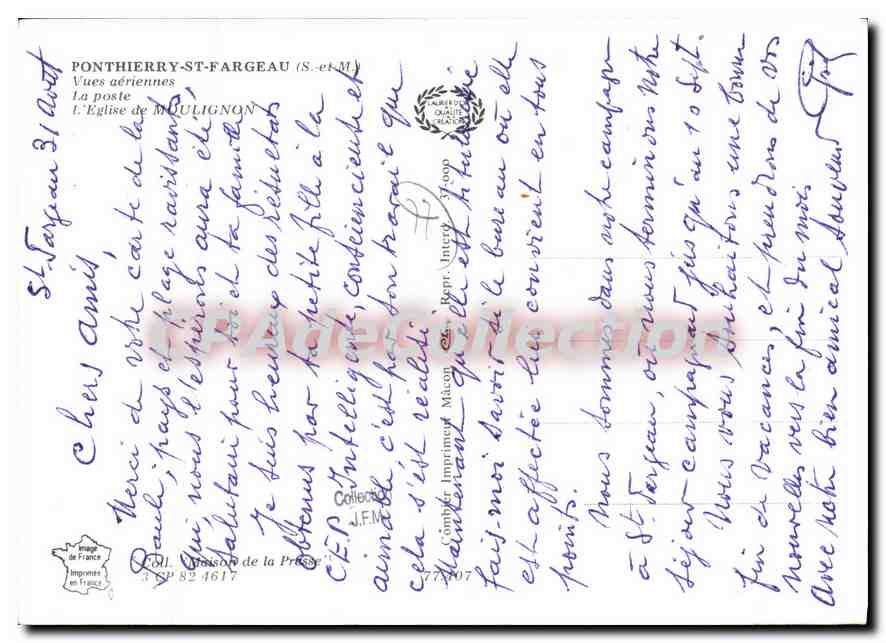 PONTHIERRY-ST-FARGEAU (S.-et-M.)
Vues aériennes
La poste
L'Eglise de MOULIGNON
LAURIER D'OR
QUALITÉ
CRÉATION
St. Fargeau 31 Août
Chers amis,
Merci de votre carte de la
Baule, pays et plage ravissants,
qui, nous l'espérons aura été
salutaire pour toi et ta famille.
Je suis heureux des résultats
obtenus par ta petite fille à la
C.E.P. Intelligente consciencieuse et
aimable c'est par son travail que
cela s'est réalisé.
Maintenant qu'elle est titularisée
fais-moi savoir si le bureau où elle
est affectée lui convient en tous
points.
Nous sommes dans notre campagne
à St. Fargeau, où nous terminons notre
séjour campagnard jusqu'au 10 Sept.
Nous vous souhaitons une bonne
fin de vacances, et prendrons de vos
nouvelles vers la fin du mois
Avec notre bien amical souvenir
Combier Imprimeur Mâcon Clay Repr. Interd. 31.000
77.407
Coll. "Maison de la Presse"
3 CP 82 4617
Image
de France
Imprimée
en France
Collection
J.F.M
CPAdeCollection